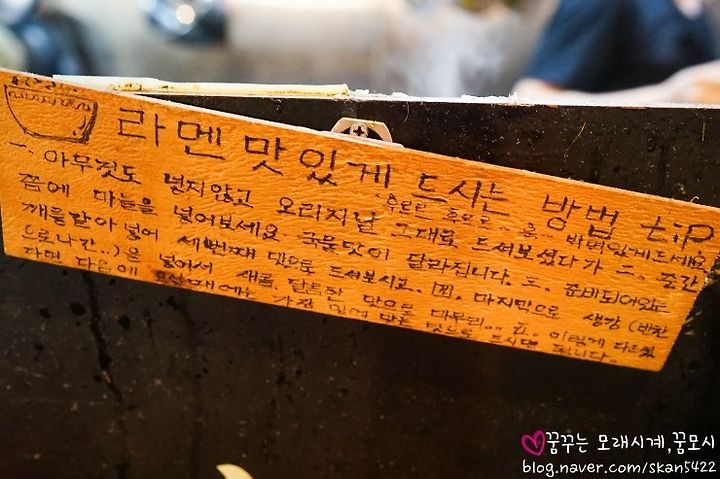 라멘 맛있게 드시는 방법 tip
一. 아무것도 넣지않고 오리지날 그대로 드셔보셨다가 二. 중간
쯤에 마늘을 넣어보세요 국물맛이 달라집니다. 三. 준비되어있는
깨를갈아넣어 세번째 맛으로 드셔보시고. 四. 마지막으로 생강(반찬
으로나간.)을 넣어서 새콤 달콤한 맛으로 마무리.. 五. 이렇게 다드셨
다면 다음에 오실때에는 가장 입에 맞는 맛으로 드시면 됩니다.
꿈꾸는 모래시계,꿈모시
blog.naver.com/skan5422